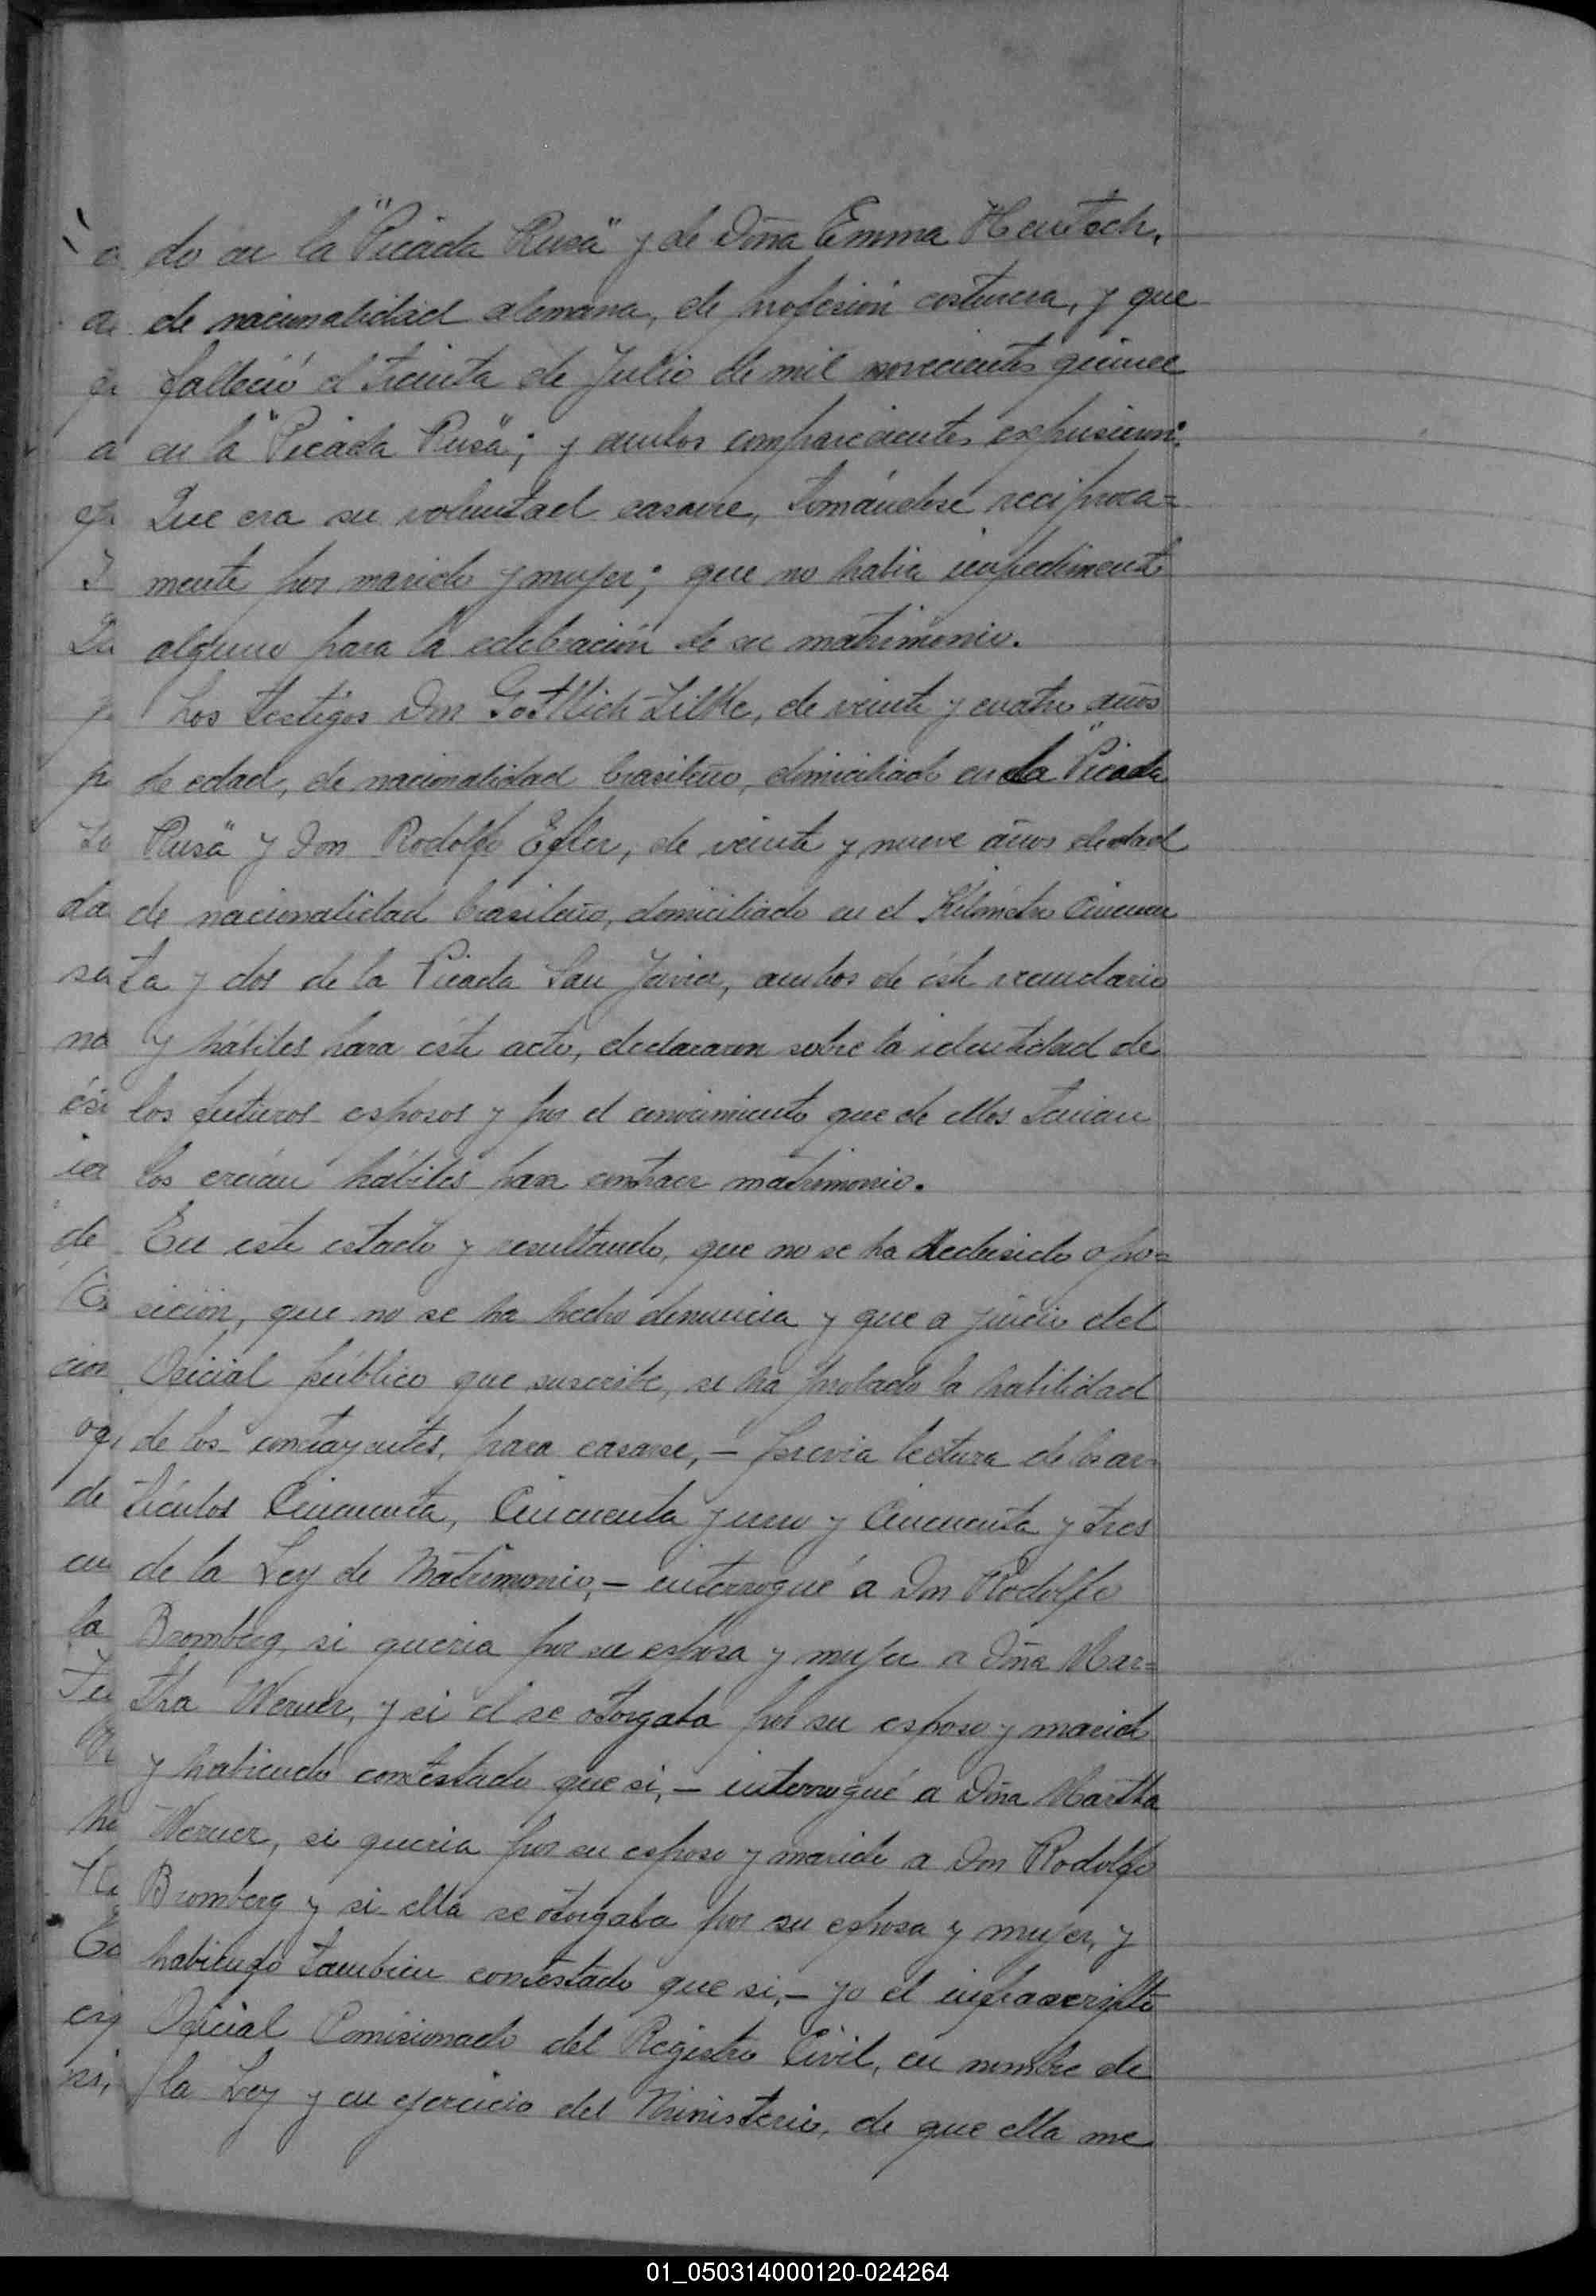 do en la "Picada Rusa" y de Doña Emma Hentsch,
de nacionalidad alemana, de profesión costurera, y que
falleció el treinta de Julio de mil novecientos quince
en la "Picada Rusa"; y ambos comparecientes expusieron:
Que era su voluntad casarse, tomándose recíproca=
mente por marido y mujer; que no había impedimento
alguno para la celebración de su matrimonio.
Los testigos Don Gottlich Lilke, de veinte y cuatro años
de edad, de nacionalidad brasileño, domiciliado en la "Picada
Rusa" y Don Rodolfo Efler, de veinte y nueve años de edad
de nacionalidad brasileño, domiciliado en el Kilómetro Cincuen
ta y dos de la Picada San Javier, ambos de éste vecindario
y hábiles para éste acto, declararon sobre la identidad de
los futuros esposos y por el conocimiento que de ellos tenian
los creían hábiles para contraer matrimonio.
En este estado y resultando, que no se ha dedusido opo=
sición, que no se ha hecho denuncia y que a juicio del
Oficial público que suscribe, se ha probado la habilidad
de los contrayentes, para casarse, – previa lectura de los ar=
tículos Cincuenta, Cincuenta y uno y Cincuenta y tres
de la Ley de Matrimonio, – interrogué a Don Rodolfo
Bromberg, si queria por su esposa y mujer a Doña Mar=
tha Werner, y si él se otorgaba por su esposo y marido
y habiendo contestado que si, – interrogué a Doña Martha
Werner, si queria por su esposo y marido a Don Rodolfo
Bromberg y si ella se otorgaba por su esposa y mujer, y
habiendo tambien contestado que si, – yo el infrascripto
Oficial Comisionado del Registro Civil, en nombre de
la Ley y en ejercicio del Ministerio, de que ella me
01_050314000120-024264